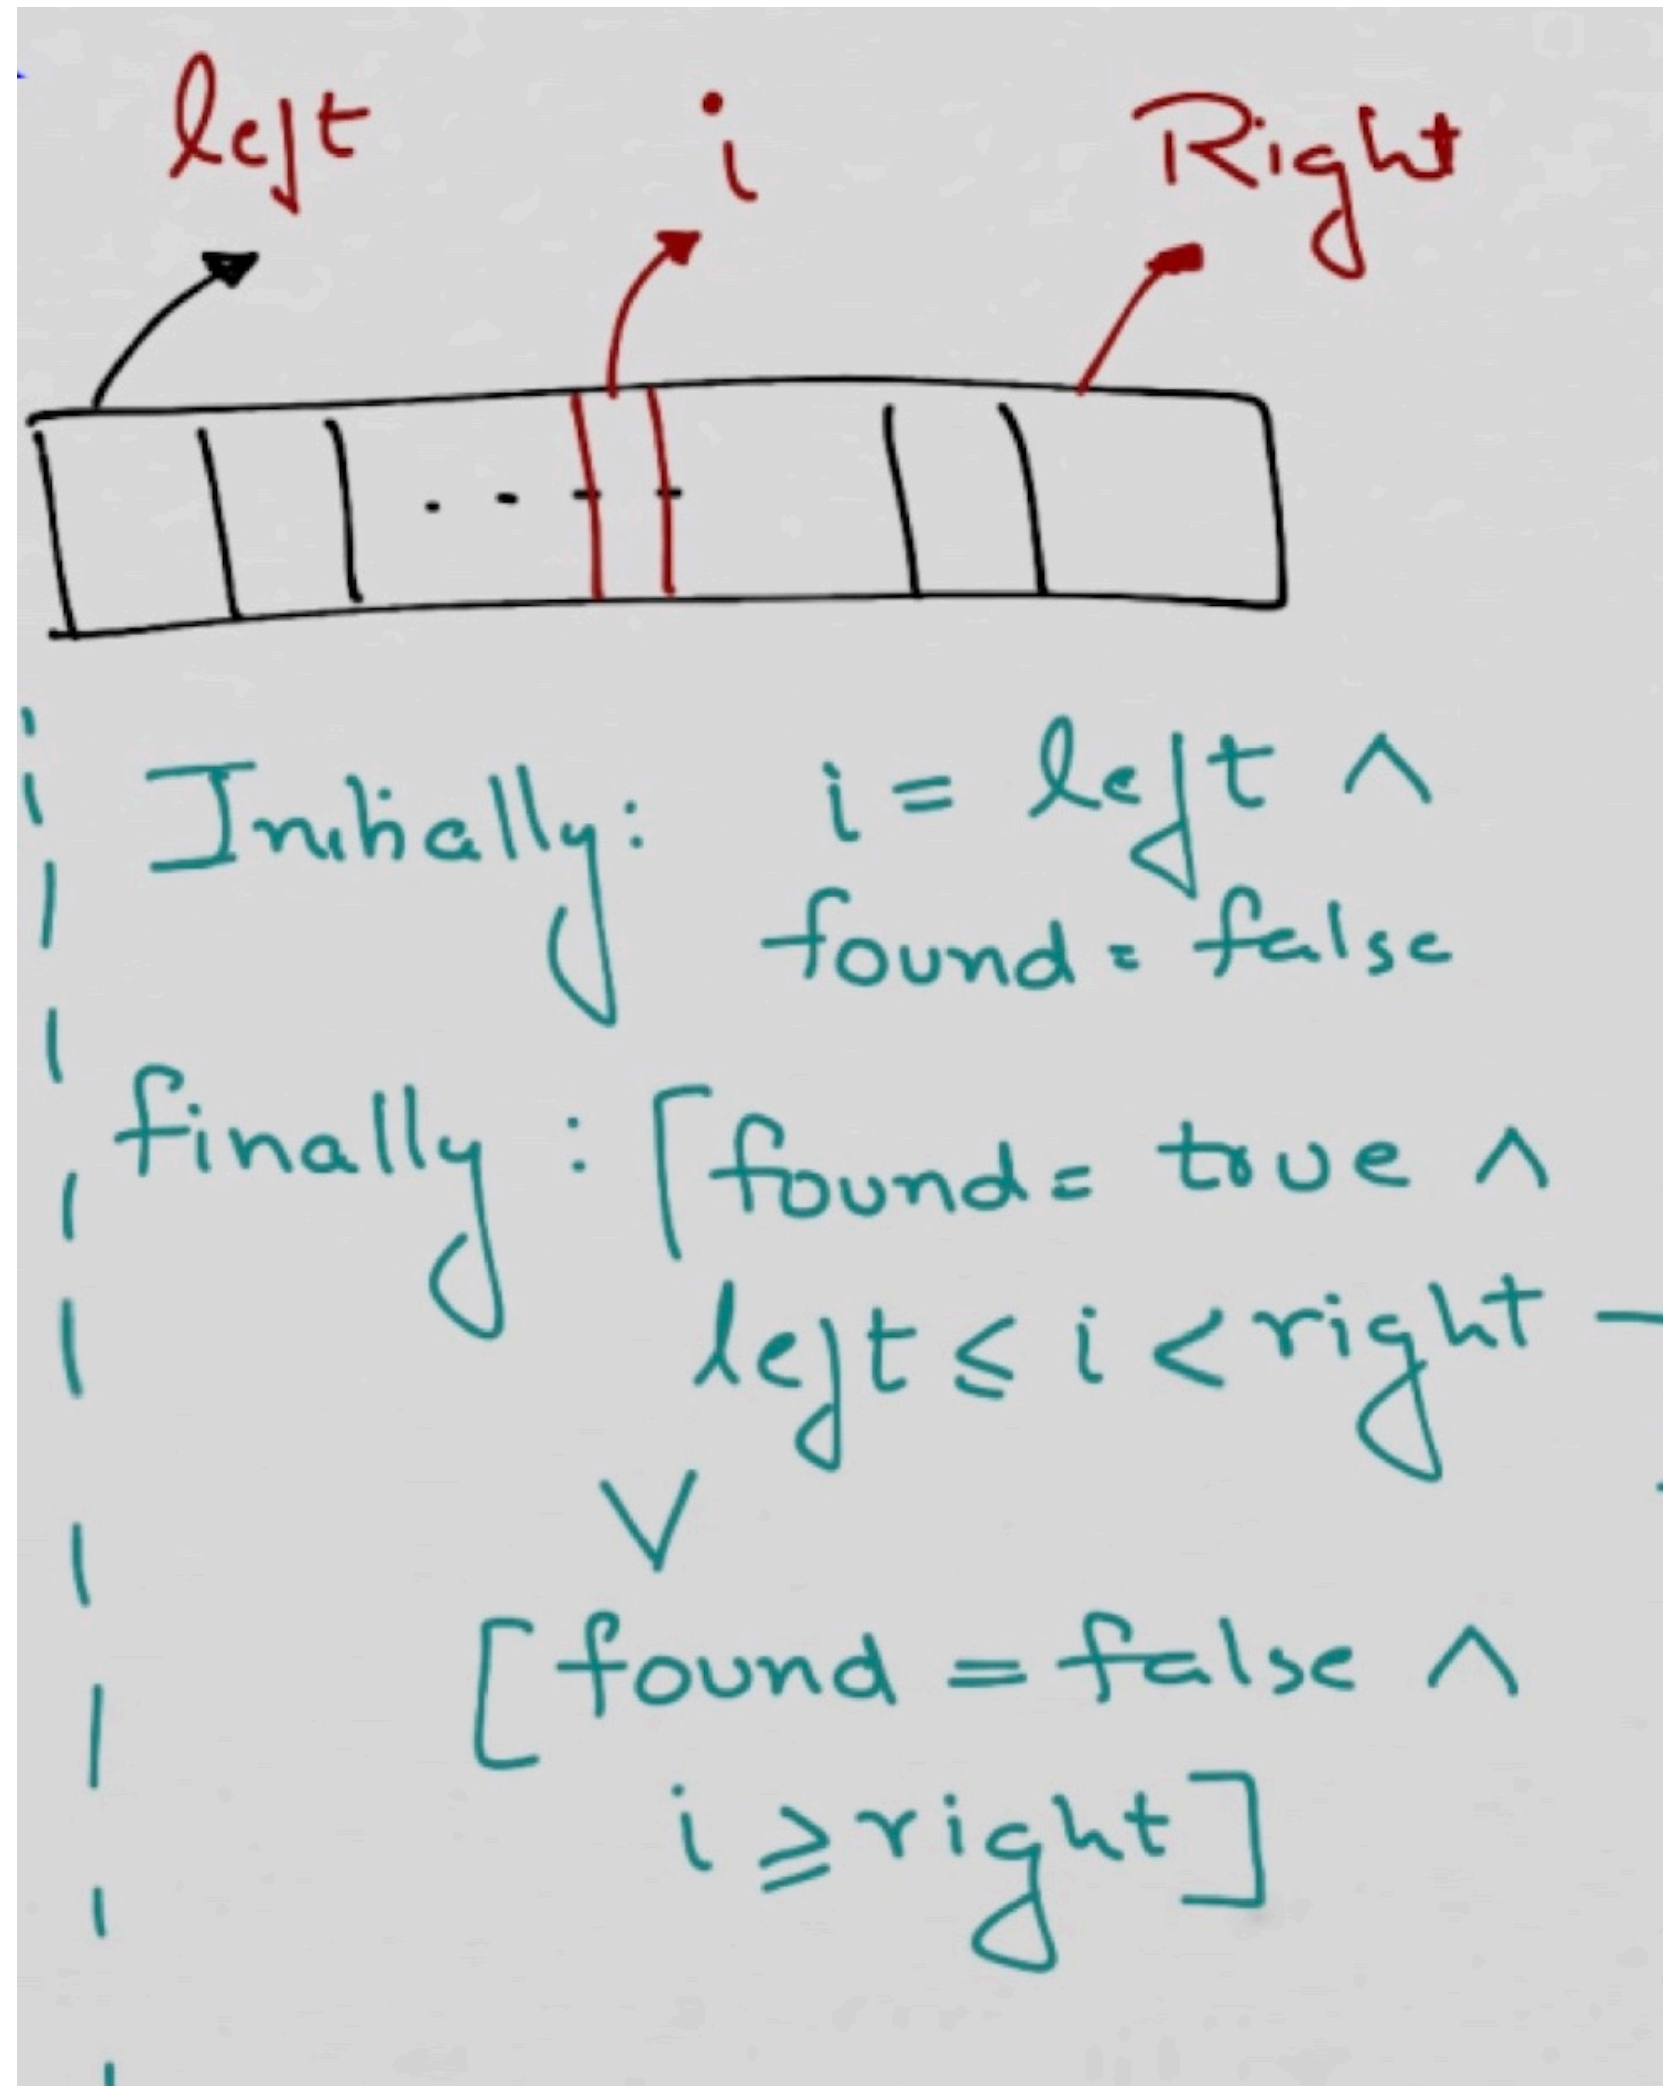 left i Right
Initially: i = left ∧
found = false
finally : [ found = true ∧
left ≤ i < right -
∨
[ found = false ∧
i ≥ right ]